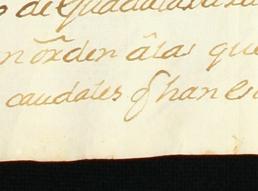 o de Guadalaxara
n orden âlas que
caudales q̃ han es